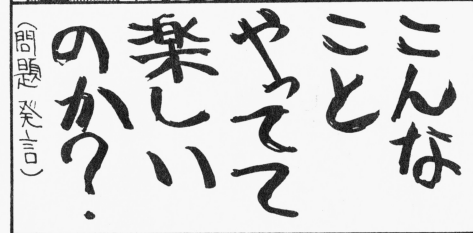 こんな
こと
やってて
楽しい
のか?
(問題発言)